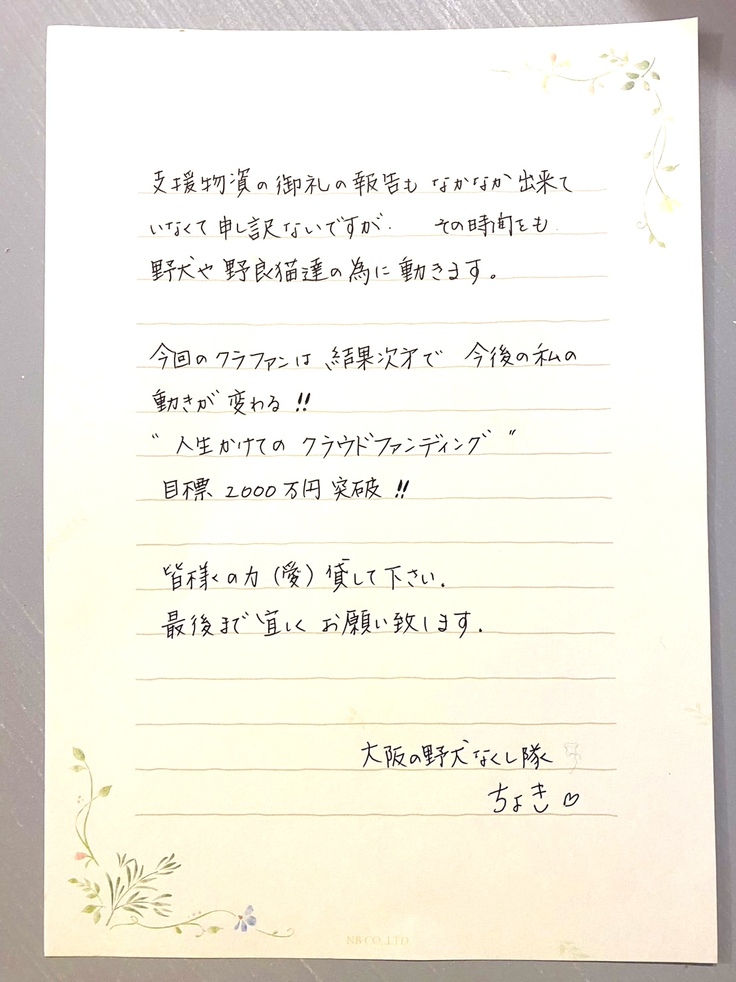 支援物資の御礼の報告も なかなか出来て
いなくて申し訳ないですが. その時間をも
野犬や野良猫達の為に動きます。
今回のクラファンは、結果次才で 今後の私の
動きが変わる!!
"人生かけての クラウドファンディング"
目標 2000万円突破!!
皆様の力(愛)貸して下さい.
最後まで宜しく お願い致します.
大阪の野犬なくし隊
ちょき♡
NB CO.,LTD